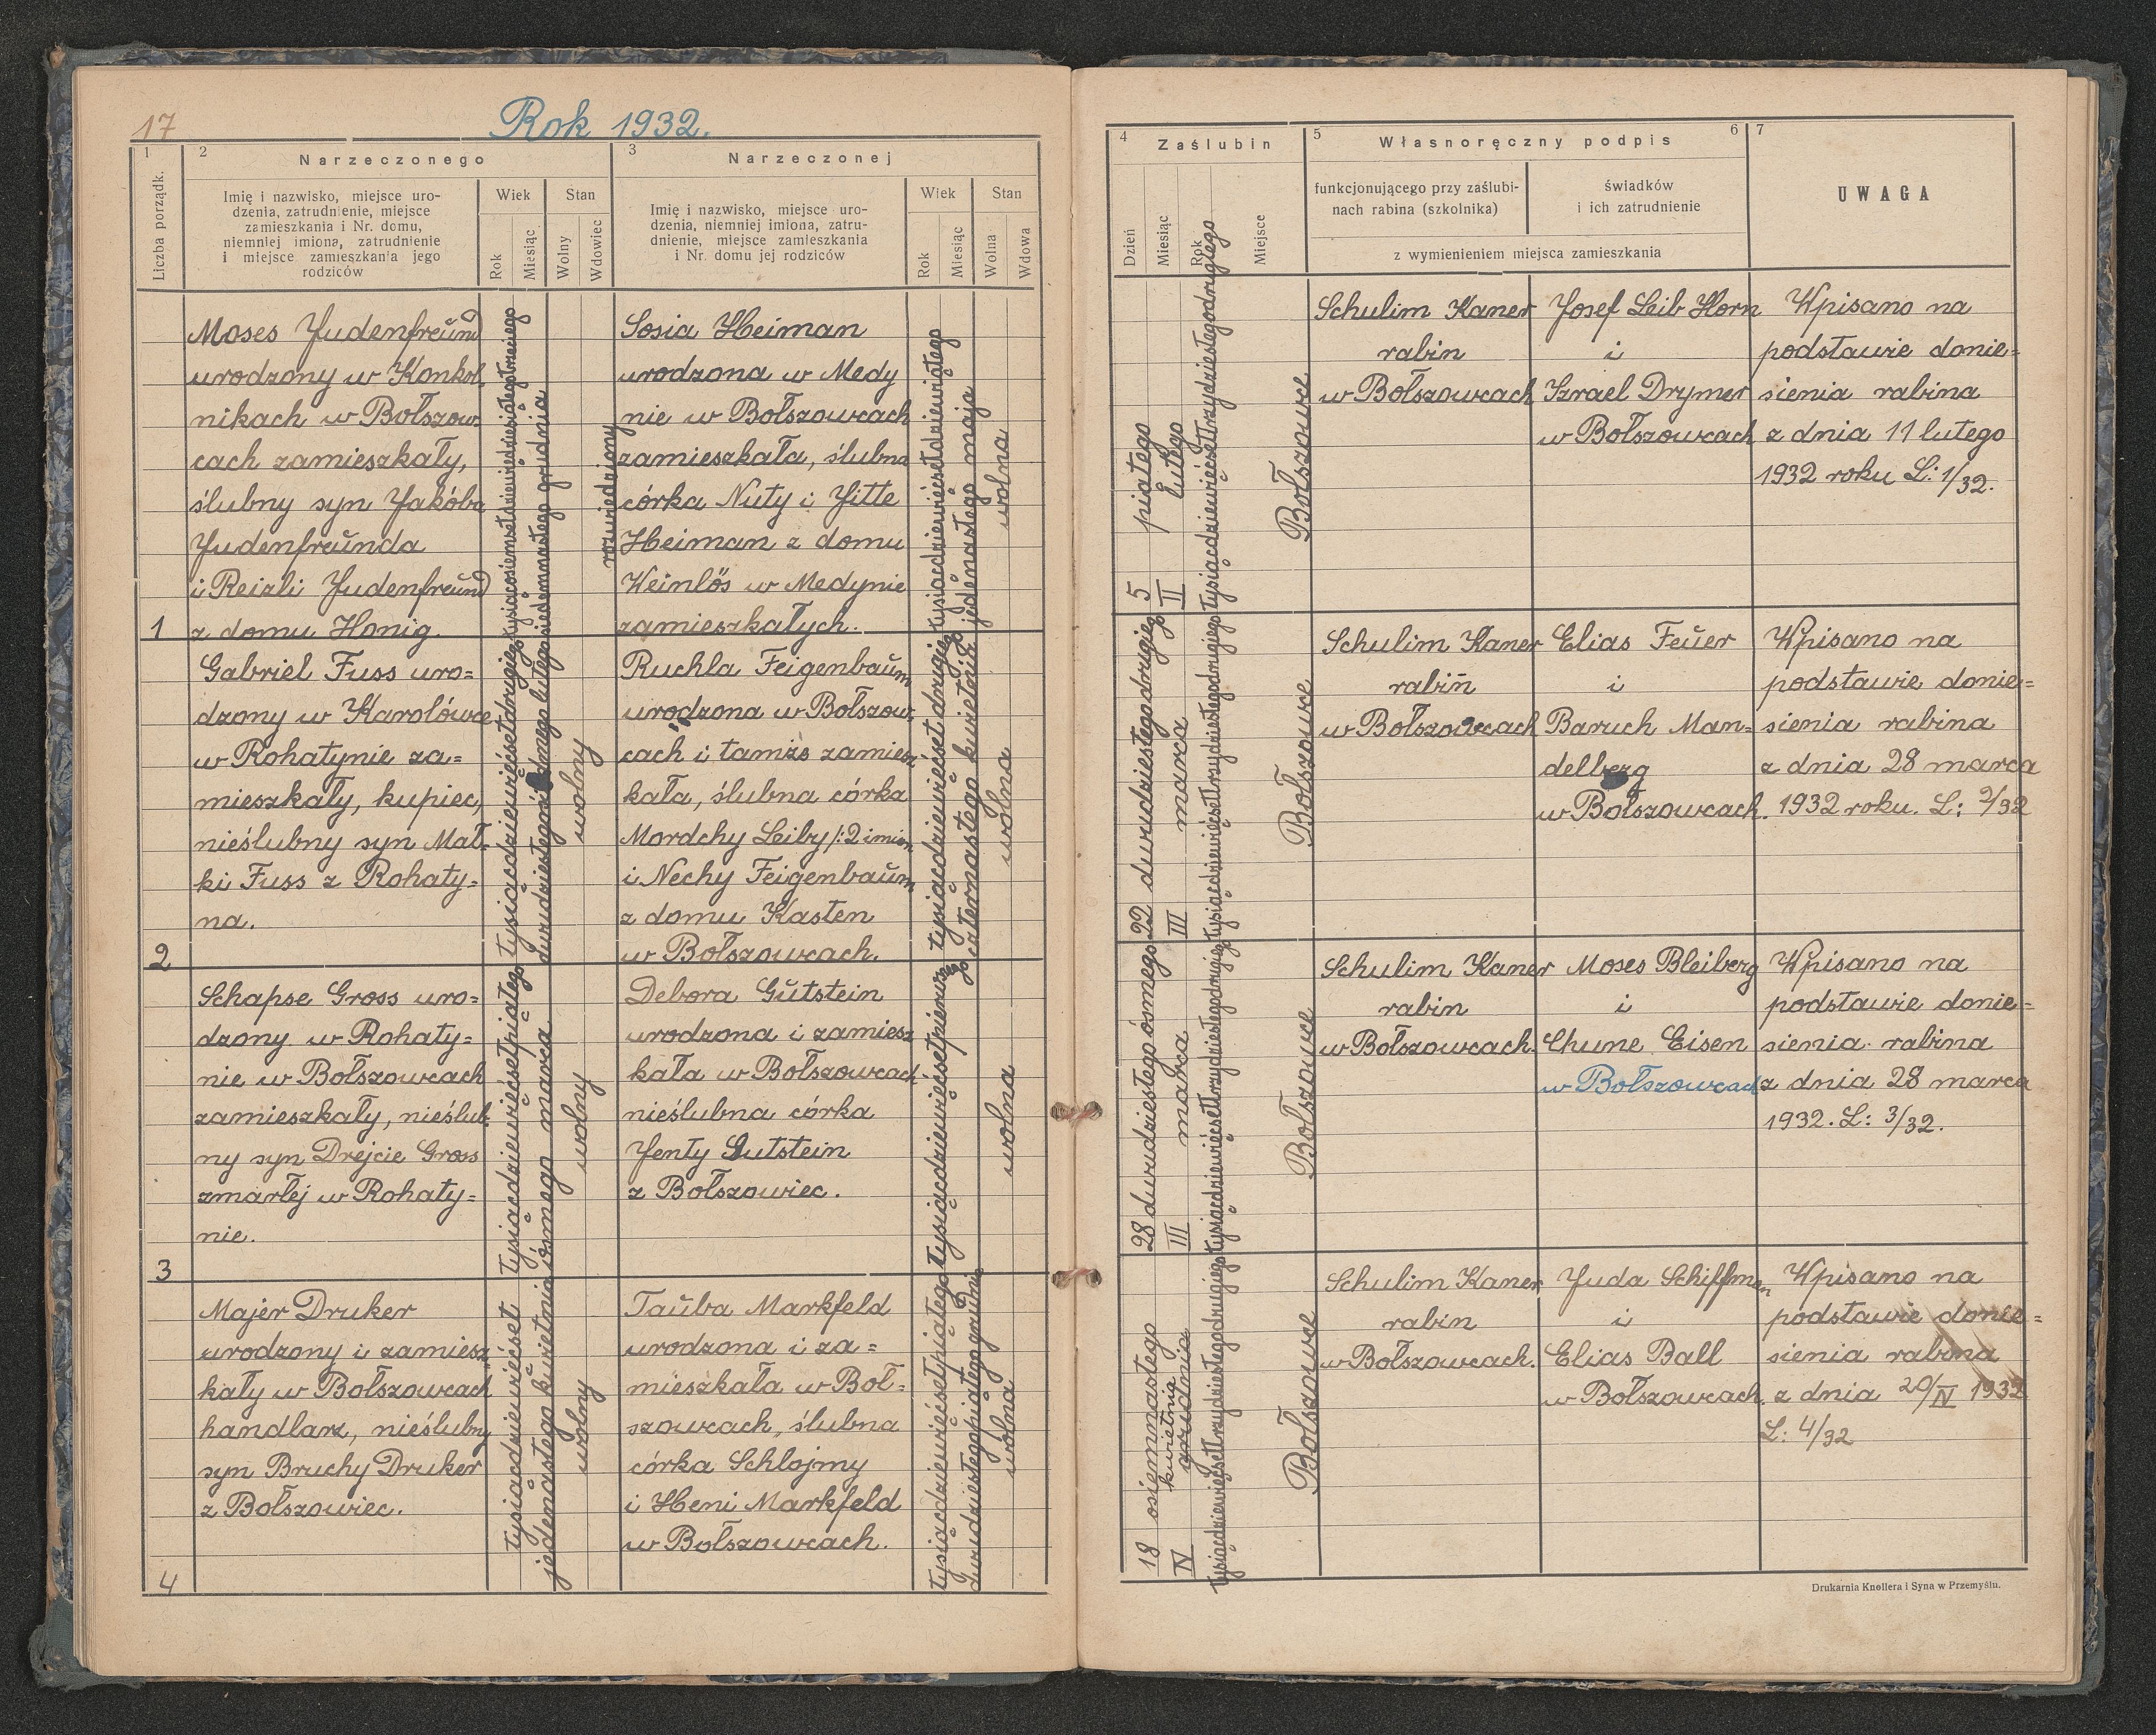 17
Rok 1932.
1
2
Narzeczonego
3
Narzeczonej
Liczba porządk.
Imię i nazwisko, miejsce uro-
dzenia, zatrudnienie, miejsce
zamieszkania i Nr. domu,
niemniej imiona, zatrudnienie
i miejsce zamieszkania jego
rodziców
Wiek
Stan
Rok
Miesiąc
Wolny
Wdowiec
Imię i nazwisko, miejsce uro-
dzenia, niemniej imiona, zatru-
dnienie, miejsce zamieszkania
i Nr. domu jej rodziców
Wiek
Stan
Rok
Miesiąc
Wolna
Wdowa
Moses Judenfreŭnd
urodzony w Konkol
nikach w Bołszow-
cach zamieszkały,
ślubny syn Jakóba
Judenfreŭnda
i Reizli Judenfreŭnd
1 z domu Honig.
tysiącośmsetdziewiędziesiątegotrzeciego
siedemnastego grudnia
rozwiedziony
Sosia Heiman
urodzona w Medy
nie w Bołszowcach
zamieszkała, ślubna
córka Nuty i Jitte
Heiman z domu
Weinlös w Medynie
zamieszkałych.
tysiącdziewięćsetdziewiątego
jedenastego maja
wolna
Gabriel Fuss uro=
dzony w Karolówce
w Rohatynie za=
mieszkały, kupiec,
nieślubny syn Mał-
ki Fuss z Rohaty-
na.
2
tysiącdziewięćsetdrugiego
lutego
wolny
Ruchla Feigenbaŭm
urodzona w Bołszow-
cach i tamże zamiesz
kała, ślubna córka
Mordchy Leiby /:2 imion
i Nechy Feigenbaŭm
z domu Kasten
w Bołszowcach.
tysiącdziewięćset drugiego
czternastego kwietnia
wolna
Schapse Gross uro=
dzony w Rohaty=
nie w Bołszowcach
zamieszkały, nieślub-
ny syn Drejcie Gross
zmarłej w Rohaty=
nie.
3
tysiącdziewięćsetpiątego
ósmego marca
wolny
Debora Gŭtstein
urodzona i zamiesz
kała w Bołszowcach
nieślubna córka
Jenty Gutstein
z Bołszowiec.
tysiącdziewięćsetpierwszego
wolna
Majer Druker
urodzony i zamiesz
kały w Bołszowcach
handlarz, nieślubny
syn Bruchy Druker
z Bołszowiec.
4
tysiącdziewięćset
jedenastego kwietnia
wolny
Taŭba Markfeld
urodzona i za=
mieszkała w Boł=
szowcach, ślubna
córka Schlojmy
i Heni Markfeld
w Bołszowcach.
tysiącdziewięćsetpiątego
dwudziestegopiątego grudnia
wolna
4
Zaślubin
5
Własnoręczny podpis
6
7
Dzień
Miesiąc
Rok
Miejsce
funkcjonującego przy zaślubi-
nach rabina (szkolnika)
świadków
i ich zatrudnienie
z wymienieniem miejsca zamieszkania
UWAGA
5 piątego
II Lutego
tysiącdziewięćsettrzydziestegodrugiego
Bołszowce
Schulim Kaner
rabin
w Bołszowcach
Josef Leib Horn
i
Izrael Drymer
w Bołszowcach
Wpisano na
podstawie donie=
sienia rabina
z dnia 11 lutego
1932 roku L: 1/32.
22 dwudziestegodrugiego
III marca
tysiącdziewięćsettrzydziestegodrugiego
Bołszowce
Schulim Kaner
rabin
w Bołszowcach
Elias Feŭer
i
Baruch Man=
delberg
w Bołszowcach.
Wpisano na
podstawie donie=
sienia rabina
z dnia 28 marca
1932 roku. L: 2/32
28 dwudziestego ósmego
III marca
tysiącdziewięćsettrzydziestegodrugiego
Bołszowce
Schulim Kaner
rabin
w Bołszowcach.
Moses Bleiberg
i
Chune Eisen
w Bołszowcach
Wpisano na
podstawie donie=
sienia rabina
z dnia 28 marca
1932. L: 3/32.
18 osiemnastego
IV kwietnia
grudnia
tysiącdziewięćsettrzydziestegodrugiego
Bołszowce
Schulim Kaner
rabin
w Bołszowcach.
Juda Schiffman
i
Elias Ball
w Bołszowcach.
Wpisano na
podstawie donie=
sienia rabina
z dnia 20/IV 1932
L: 4/32
Drukarnia Knollera i Syna w Przemyślu.